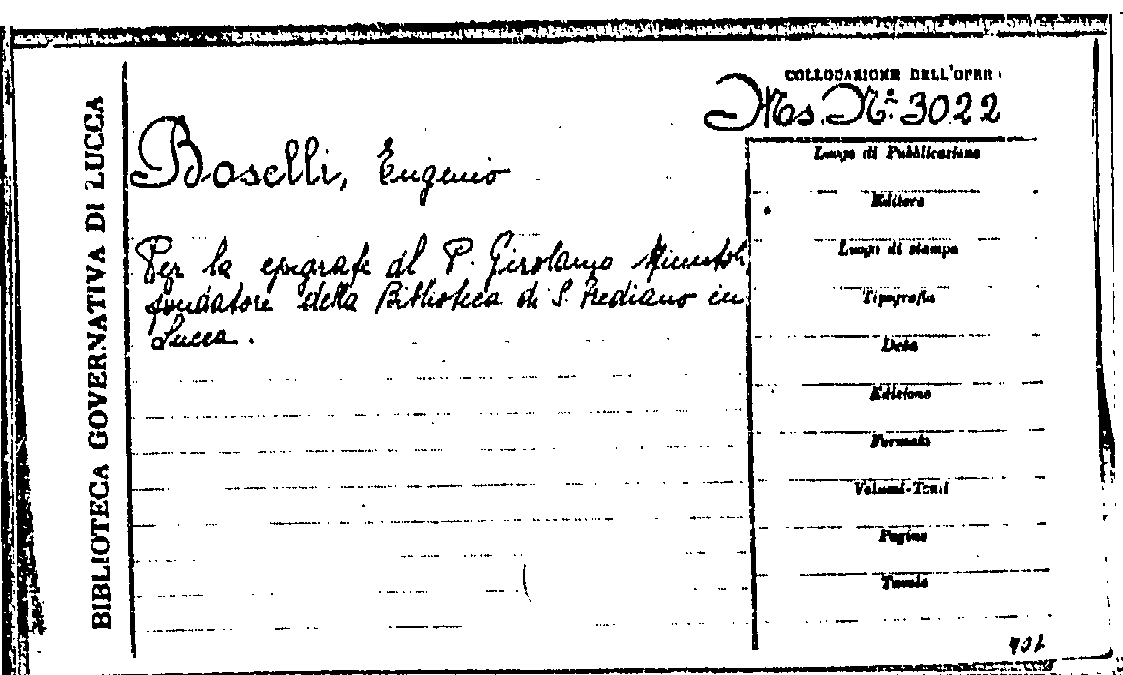 BIBLIOTECA GOVERNATIVA DI LUCCA
COLLOCAZIONE DELL'OPERA
Ms. N.° 3022
Boselli, Eugenio
Per la epigrafe al P. Girolamo Minutoli,
fondatore della Biblioteca di S. Frediano in
Lucca.
Luogo di Pubblicazione
Editore
Luogo di stampa
Tipografia
Data
Edizione
Formato
Volumi-Tomi
Pagine
Tavole